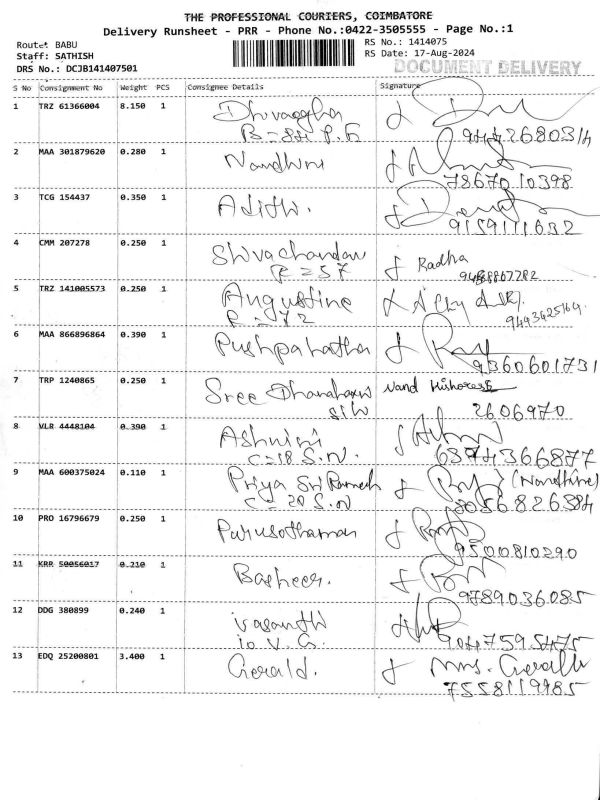 THE PROFESSIONAL COURIERS, COIMBATORE
Delivery Runsheet - PRR - Phone No.:0422-3505555 - Page No.:1
Route: BABU
RS No.: 1414075
Staff: SATHISH
RS Date: 17-Aug-2024
DRS No.: DCJB141407501
DOCUMENT DELIVERY
S No Consignment No Weight PCS Consignee Details Signature
1 TRZ 61366004 8.150 1
2 MAA 301879620 0.280 1 Nandhini
78670 10398
3 TCG 154437 0.350 1 Adithi.
9159111632
4 CMM 207278 0.250 1 Shivachandan Radha
5 TRZ 141005573 0.250 1 Augustine
6 MAA 866896864 0.390 1 Pushpalatha
9360601731
7 TRP 1240865 0.250 1 Sree Nand Kishore
2606970
8 VLR 4448104 0.390 1 Ashwini
C=18 S.N. 6374366877
9 MAA 600375024 0.110 1 Priya Sri Ramesh (Nandhini)
C=20 S.N 8056826384
10 PRO 16796679 0.250 1 Purusothaman
9500810290
11 KRR 50056017 0.210 1 Basheer.
9789036085
12 DDG 380899 0.240 1 Vasanthi
10 V.G. 9047595475
13 EDQ 25200801 3.400 1 Gerald. Mrs. Gerald
7558119985